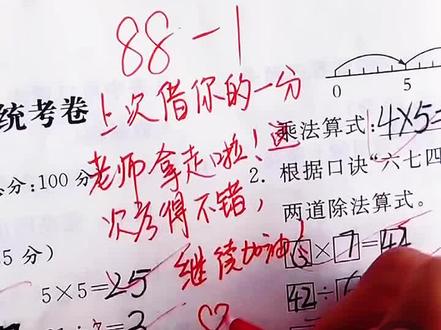 88-1
上次借你的一分
老师拿走啦!这
次考得不错,
继续加油!
统考卷
分:100分
5分)
5×5=25
0 5
乘法算式:4×5=
2. 根据口诀“六七四
两道除法算式。
6×7=42
42÷6